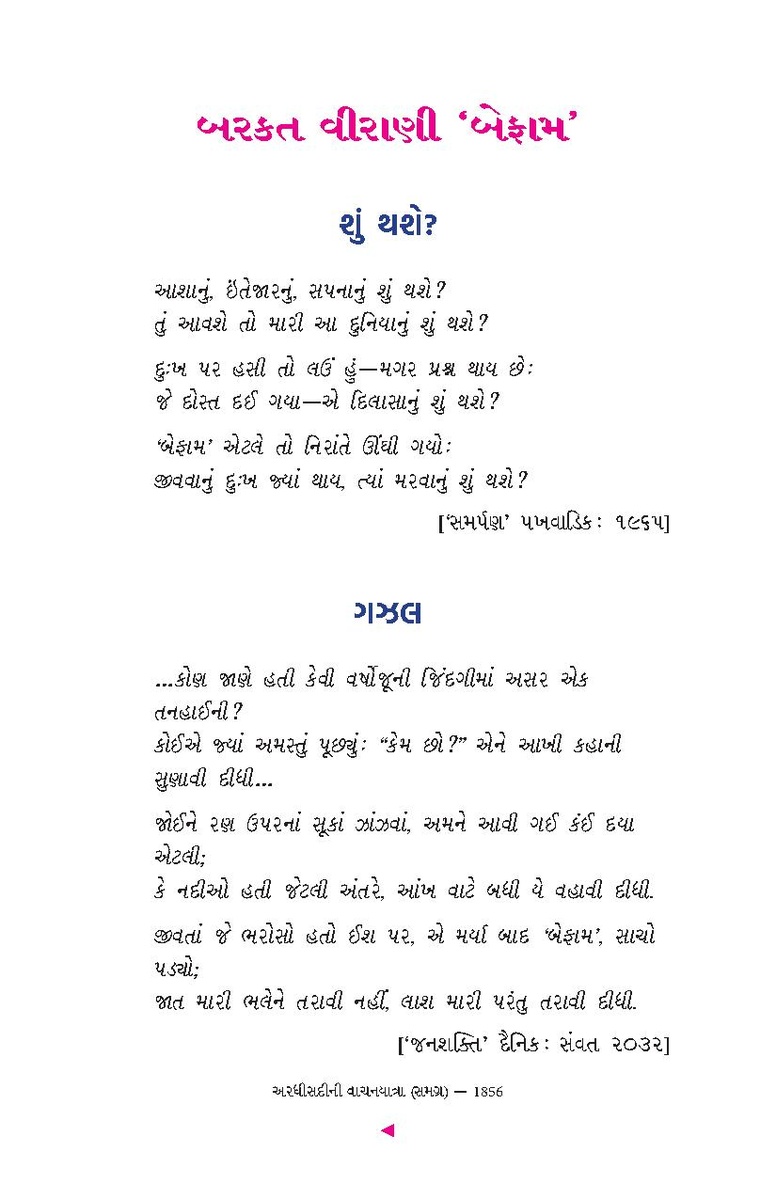 બરકત વીરાણી ‘બેફામ’
શું થશે?
આશાનું, ઇંતેજારનું, સપનાનું શું થશે?
તું આવશે તો મારી આ દુનિયાનું શું થશે?
દુઃખ પર હસી તો લઉં હું—મગર પ્રશ્ન થાય છેઃ
જે દોસ્ત દઈ ગયા—એ દિલાસાનું શું થશે?
‘બેફામ’ એટલે તો નિરાંતે ઊંઘી ગયોઃ
જીવવાનું દુઃખ જ્યાં થાય, ત્યાં મરવાનું શું થશે?
[‘સમર્પણ’ પખવાડિકઃ ૧૯૬૫]
ગઝલ
...કોણ જાણે હતી કેવી વર્ષોજૂની જિંદગીમાં અસર એક
તનહાઈની?
કોઈએ જ્યાં અમસ્તું પૂછ્યુંઃ “કેમ છો?” એને આખી કહાની
સુણાવી દીધી...
જોઈને રણ ઉપરનાં સૂકાં ઝાંઝવાં, અમને આવી ગઈ કંઈ દયા
એટલી;
કે નદીઓ હતી જેટલી અંતરે, આંખ વાટે બધી યે વહાવી દીધી.
જીવતાં જે ભરોસો હતો ઈશ પર, એ મર્યા બાદ ‘બેફામ’, સાચો
પડ્યો;
જાત મારી ભલેને તરાવી નહીં, લાશ મારી પરંતુ તરાવી દીધી.
[‘જનશક્તિ’ દૈનિકઃ સંવત ૨૦૩૨]
અરધીસદીની વાચનયાત્રા (સમગ્ર) — 1856